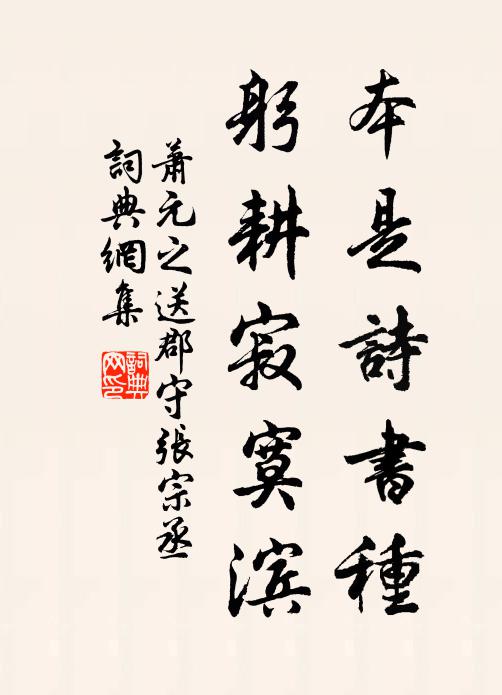 本是詩書種
躬耕寂寞濱
蕭元之送郡守張宗丞
詞典網集
詞典网印